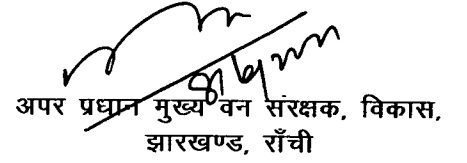 अपर प्रधान मुख्य वन संरक्षक, विकास,
झारखण्ड, राँची